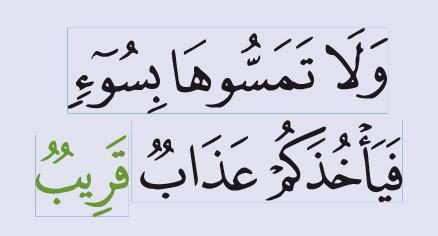 وَلَا تَمَسُّوهَا بِسُوٓءٍ
فَيَأْخُذَكُمْ عَذَابٌ قَرِيبٌ